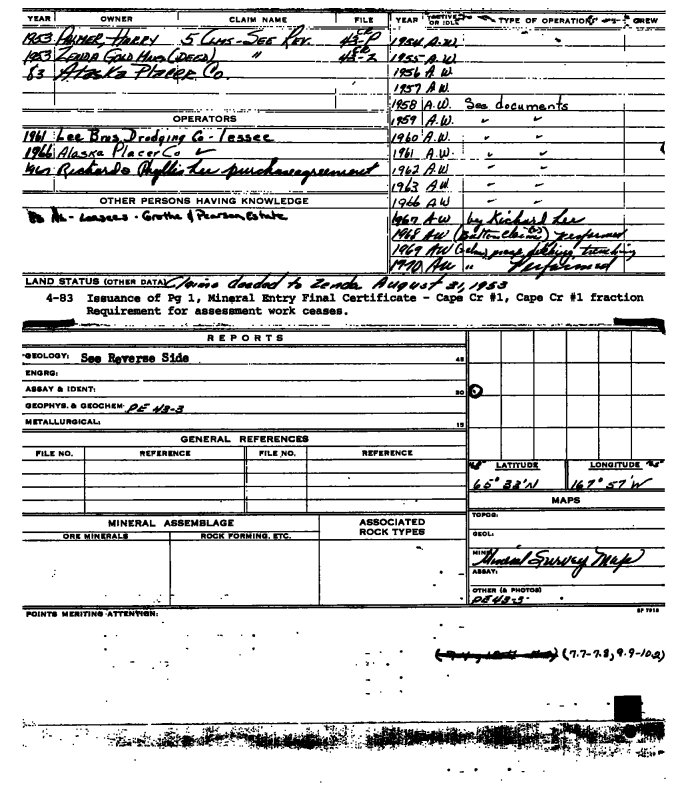 YEAR OWNER CLAIM NAME FILE YEAR ACTIVE OR IDLE TYPE OF OPERATIONS CREW
1953 PALMER, HARRY 5 CLMS - SEE REV. 43-
1953 ZENDA GOLD MINING (DEED) " 43-2
83 Alaska Placer Co.
1954 A.W. "
1955 A.W.
1956 A.W.
1957 A.W.
1958 A.W. See documents
OPERATORS
1959 A.W. " "
1961 Lee Bros. Dredging Co - lessee
1960 A.W. " "
1966 Alaska Placer Co
1961 A.W. " "
Richard & Phyllis Lee purchase agreement
1962 A.W. " "
1963 AW " "
OTHER PERSONS HAVING KNOWLEDGE
1966 AW " "
Lessees - Grothe & Pearson Estate
1967 AW by Richard Lee
1968 AW (Batton Claims) performed
1969 AW trenching
1970 AW " Performed
LAND STATUS (OTHER DATA) Claims deeded to Zenda August 31, 1953
4-83 Issuance of Pg 1, Mineral Entry Final Certificate - Cape Cr #1, Cape Cr #1 fraction
Requirement for assessment work ceases.
REPORTS
GEOLOGY: See Reverse Side 45
ENGRG:
ASSAY & IDENT: 30
GEOPHYS. & GEOCHEM: PE 43-3
METALLURGICAL: 15
GENERAL REFERENCES
FILE NO. REFERENCE FILE NO. REFERENCE
LATITUDE LONGITUDE
65° 38'N 167° 57'W
MAPS
MINERAL ASSEMBLAGE ASSOCIATED ROCK TYPES
ORE MINERALS ROCK FORMING, ETC.
TOPOG:
GEOL:
MINE: Mineral Survey Map
ASSAY:
OTHER (& PHOTOS)
PE 43-3
POINTS MERITING ATTENTION:
(7.7-7.8, 9.9-10.2)